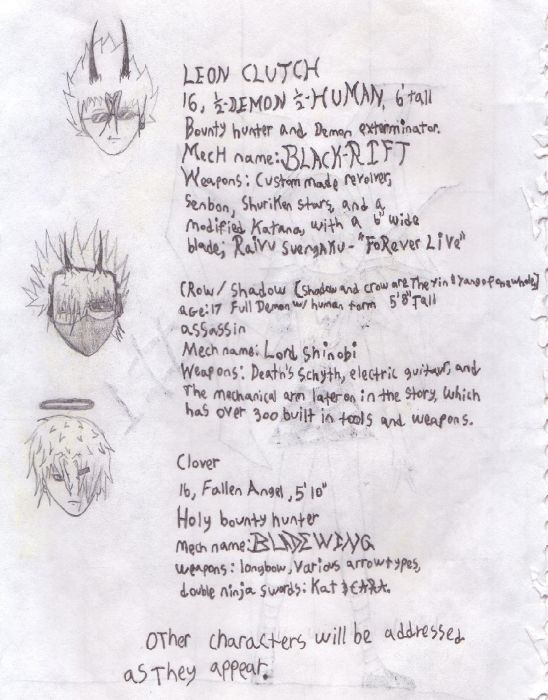 LEON CLUTCH
16, ½-DEMON ½-HUMAN, 6' tall
Bounty hunter and Demon exterminator.
MecH name: BLACK-RIFT
Weapons: Custom made revolver,
Senbon, Shuriken stars, and a
modified Katana, with a 6" wide
blade; Raivu - "FoRever LiVe"
CRow/Shadow [Shadow and crow are The Yin & Yang of one whole]
age:17 Full Demon w/ human form 5'8" Tall
assassin
Mech name: Lord Shinobi
Weapons: Death's Schyth, electric guitar, and
The mechanical arm later on in the story, which
has over 300 built in tools and weapons.
Clover
16, Fallen Angel, 5'10"
Holy bounty hunter
Mech name: BLADEWING
weapons: longbow, Various arrow types,
double ninja swords: Kat
OTHer characters will be addressed
as They appear.